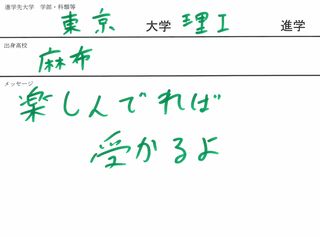 進学先大学 学部・科類等
東京 大学 理I 進学
出身高校
麻布
メッセージ
楽しんでれば
受かるよ